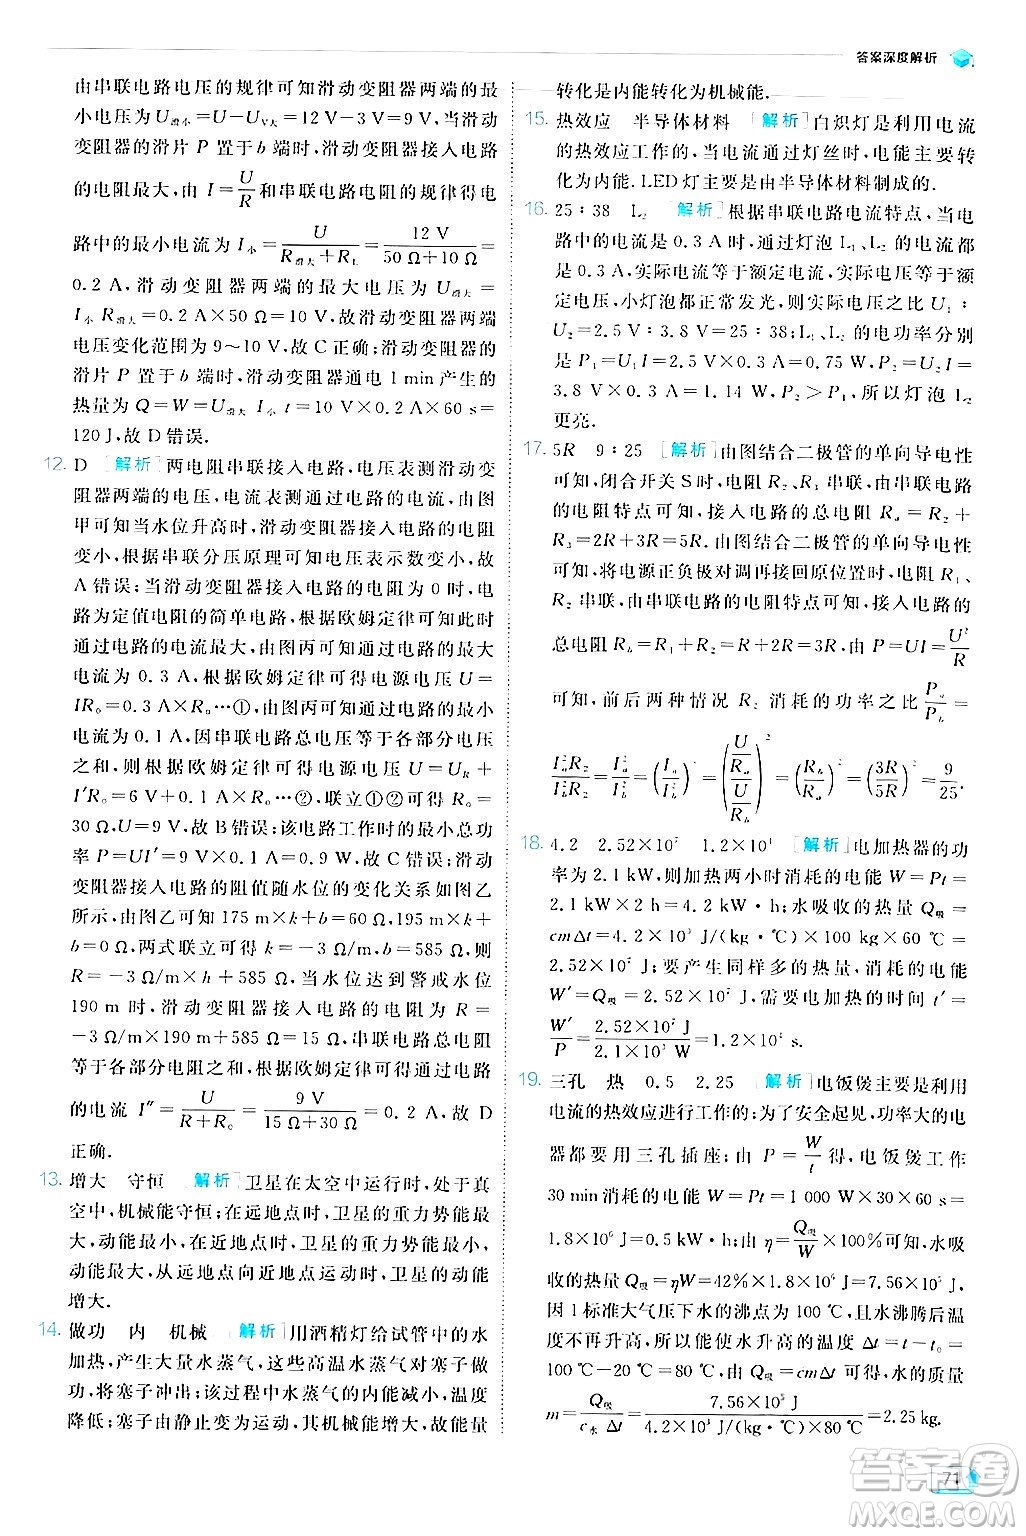 答案深度解析
由串联电路电压的规律可知滑动变阻器的最
小电压为U滑小=U-UV大=12 V-3 V=9 V,当滑动
变阻器的滑片 P 置于 b 端时,滑动变阻器接入电路
的电阻最大,由 I=U/R和串联电路电阻的规律得电
路中的最小电流为 I小=U/(R滑大+RL)=12 V/(50 Ω+10 Ω)=
0.2 A,滑动变阻器两端的最大电压为U滑大=
I小R滑大=0.2 A×50 Ω=10 V,故滑动变阻器两端
电压变化范围为 9~10 V,故 C 正确;滑动变阻器的
滑片 P 置于 b 端时,滑动变阻器通电 1 min 产生的
热量为 Q=W=U滑大 I小 t=10 V×0.2 A×60 s=
120 J,故 D 错误.
12. D [解析] 两电阻串联接入电路,电压表测滑动变
阻器两端的电压,电流表测通过电路的电流,由图
甲可知当水位升高时,滑动变阻器接入电路的电阻
变小,根据串联分压原理可知电压表示数变小,故
A 错误;当滑动变阻器接入电路的电阻为 0 时,电
路为定值电阻的简单电路,根据欧姆定律可知此时
通过电路的电流最大,由图丙可知通过电路的最大
电流为 0.3 A,根据欧姆定律可得电源电压 U=
IR₀=0.3 A×R₀…①,由图丙可知通过电路的最小
电流为 0.1 A,因串联电路总电压等于各部分电压
之和,再根据欧姆定律可得电源电压 U=UR+
I′R₀=6 V+0.1 A×R₀…②,联立①②可得 R₀=
30 Ω,U=9 V,故 B 错误;该电路工作时的最小电功
率 P=UI′=9 V×0.1 A=0.9 W,故 C 错误;滑动
变阻器接入电路的阻值随水位的变化关系如图乙
所示,由图乙可知 175 m×k+b=60 Ω,195 m×k
+b=0 Ω,两式联立可得 k=-3 Ω/m,b=585 Ω,则
R=-3 Ω/m×h+585 Ω,当水位达到警戒水位
190 m 时,滑动变阻器接入电路的电阻 R=
-3 Ω/m×190 m+585 Ω=15 Ω,串联电路总电阻
等于各部分电阻之和,根据欧姆定律可得通过电路
的电流 I″=U/(R+R₀)=9 V/(15 Ω+30 Ω)=0.2 A,故 D
正确.
13. 增大 守恒 [解析] 卫星在太空中运行时,处于真
空中,机械能守恒;在远地点时,卫星的重力势能最
大,动能最小,在近地点时,卫星的重力势能最小,
动能最大,从远地点向近地点运动时,卫星的动能
增大.
14. 做功 内 机械 [解析] 用酒精灯给试管中的水
加热,产生大量水蒸气,这些高温水蒸气对塞子做
功,将塞子冲出;该过程中水蒸气的内能减小,温度
降低;塞子由静止变为运动,其机械能增大,故能量
转化是内能转化为机械能.
15. 热效应 半导体材料 [解析] 白炽灯是利用电流
的热效应工作的,当电流通过灯丝时,电能主要转
化为内能.LED 灯主要是由半导体材料制成的.
16. 25∶38 L₂ [解析] 根据串联电路电流特点,当电
路中的电流是 0.3 A时,通过灯泡 L₁、L₂ 的电流都
是 0.3 A,实际电流等于额定电流,实际电压等于额
定电压,小灯泡都正常发光,则实际电压之比 U₁∶
U₂=2.5 V∶3.8 V=25∶38;L₁、L₂ 的电功率分别
是 P₁=U₁I=2.5 V×0.3 A=0.75 W,P₂=U₂I=
3.8 V×0.3 A=1.14 W,P₂>P₁,所以灯泡 L₂
更亮.
17. 5R 9∶25 [解析] 由图结合二极管的单向导电性
可知,闭合开关 S 时,电阻 R₂、R₃ 串联,由串联电路
的电阻特点可知,接入电路的总电阻 Ra=R₂+
R₃=2R+3R=5R.由图结合二极管的单向导电性
可知,将电源正负极对调再接回原位置时,电阻 R₁、
R₂ 串联,由串联电路的电阻特点可知,接入电路的
总电阻 Rb=R₁+R₂=R+2R=3R,由 P=UI=U²/R
可知,前后两种情况 R₂ 消耗的功率之比 Pa/Pb=
Ia²R₂/Ib²R₂=Ia²/Ib²=(Ia/Ib)²=((U/Ra)/(U/Rb))²=(Rb/Ra)²=(3R/5R)²=9/25.
18. 4.2 2.52×10⁷ 1.2×10⁴ [解析] 电加热器的功
率为 2.1 kW,则加热两小时消耗的电能 W=Pt=
2.1 kW×2 h=4.2 kW·h;水吸收的热量 Q吸=
cmΔt=4.2×10³ J/(kg·℃)×100 kg×60 ℃=
2.52×10⁷ J;要产生同样多的热量,消耗的电能
W′=Q吸=2.52×10⁷ J,需要电加热的时间 t′=
W′/P=2.52×10⁷ J/2.1×10³ W=1.2×10⁴ s.
19. 三孔 热 0.5 2.25 [解析] 电饭煲主要是利用
电流的热效应进行工作的;为了安全起见,功率大的电
器都要用三孔插座;由 P=W/t可知,电饭煲工作
30 min 消耗的电能 W=Pt=1 000 W×30×60 s=
1.8×10⁶ J=0.5 kW·h;由 η=Q吸/W×100%可知,水吸
收的热量 Q吸=ηW=42%×1.8×10⁶ J=7.56×10⁵ J,
因 1 标准大气压下水的沸点为 100 ℃,且水沸腾后温
度不再升高,故能使水升高的温度 Δt=t-t₀=
100 ℃-20 ℃=80 ℃,由 Q吸=cmΔt 可得,水的质量
m=Q吸/(c水 Δt)=7.56×10⁵ J/(4.2×10³ J/(kg·℃)×80 ℃)=2.25 kg.
71
答案圈
MXQE.COM